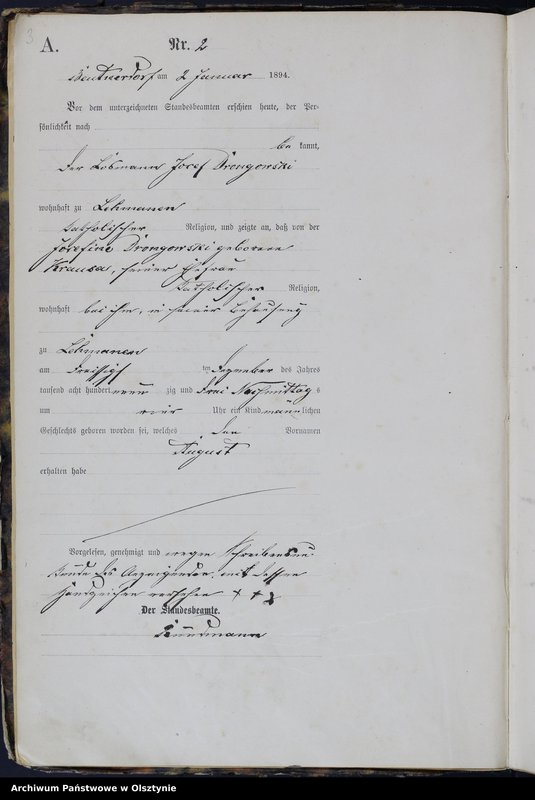 3
A.
Nr. 2
Beutnerdorf am 2 Januar 1894.
Vor dem unterzeichneten Standesbeamten erschien heute, der Per-
sönlichkeit nach
be kannt,
der Losmann Josef Drongowski
wohnhaft zu Lehmanen
katholischer Religion, und zeigte an, daß von der
Josefine Drongowski geborene
Krause, seiner Ehefrau
katholischer Religion,
wohnhaft bei ihm, in seiner Behausung
zu Lehmanen
am Dreißigst ten Dezember des Jahres
tausend acht hundert neun zig und drei Nachmittag s
um Uhr ein Kind männ lichen
Geschlechts geboren worden sei, welches den Vornamen
August
erhalten habe
Vorgelesen, genehmigt und wegen Schreibensun
kunde des Anzeigenden, mit dessen
Handzeichen versehen + + +
Der Standesbeamte.
Archiwum Państwowe w Olsztynie